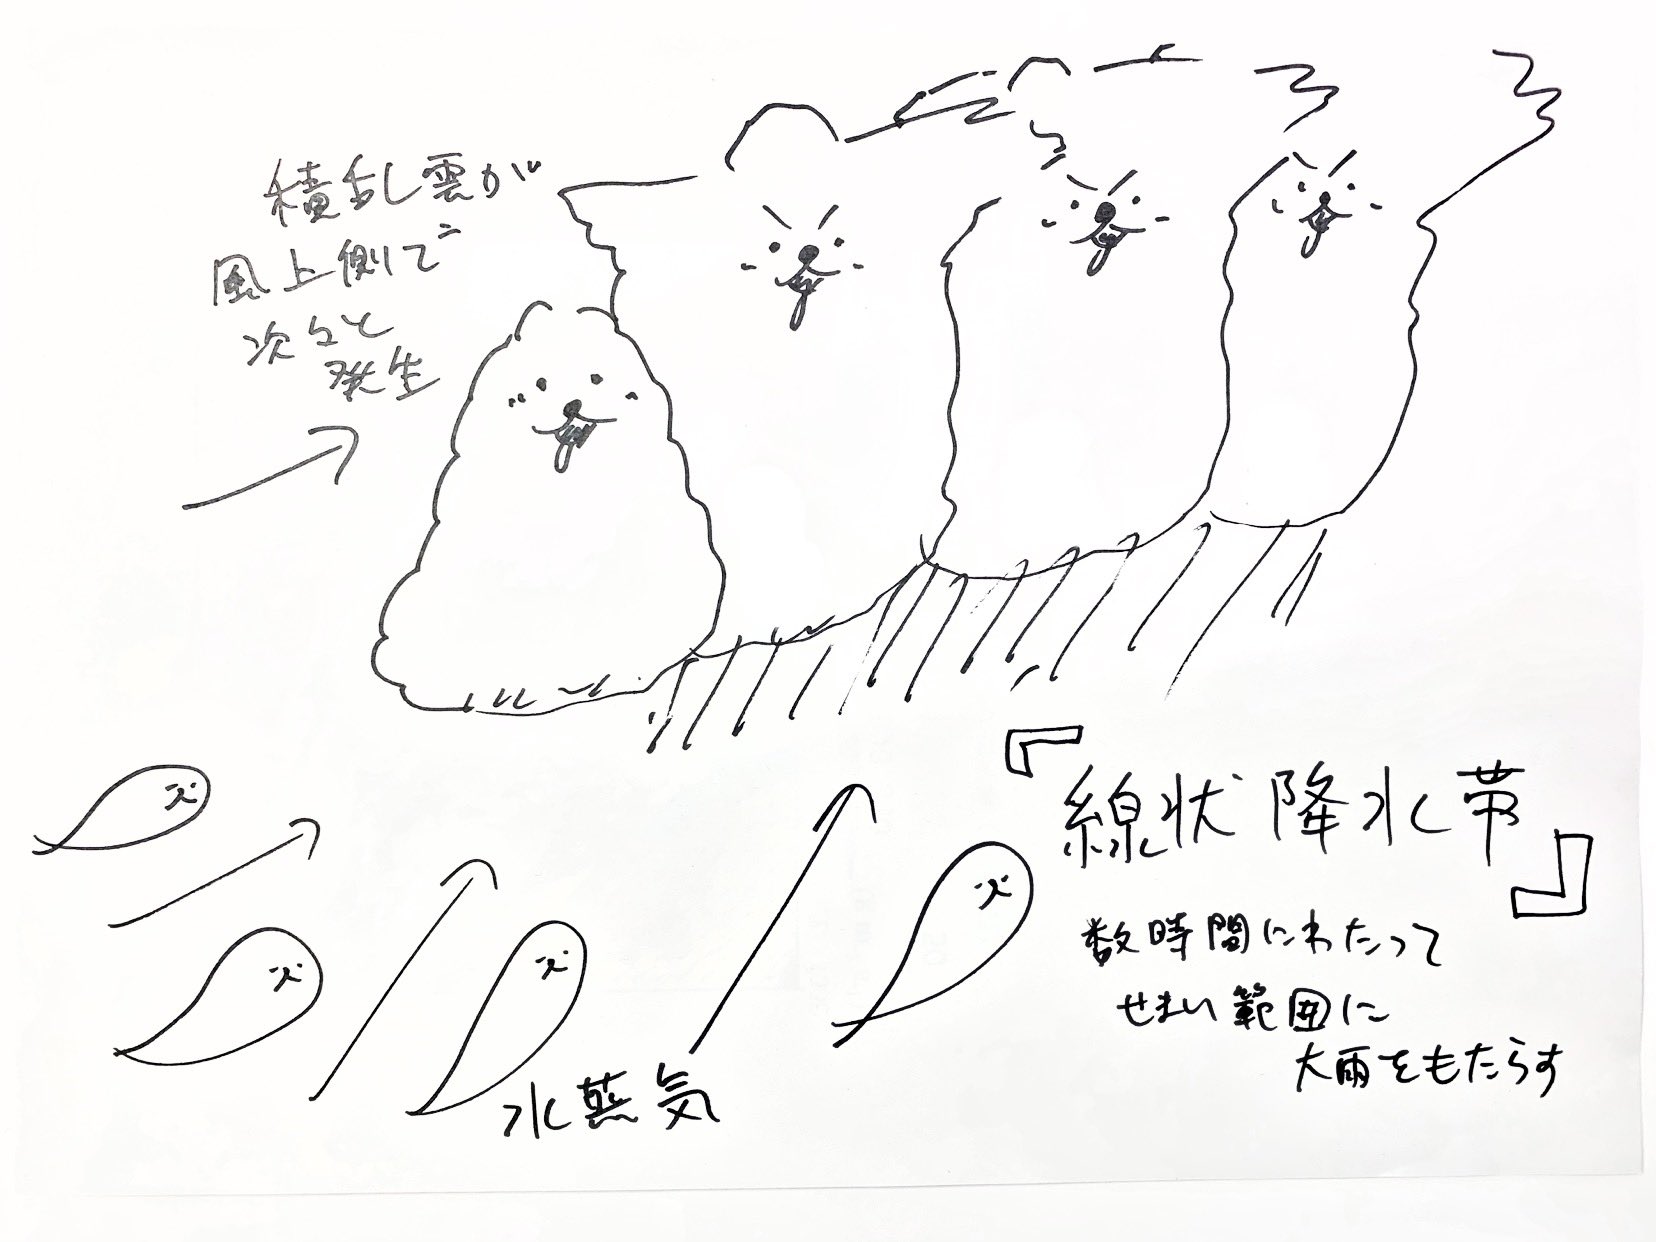 積乱雲が
風上側で
次々と
発生
『線状降水帯』
数時間にわたって
せまい範囲に
大雨をもたらす
水蒸気